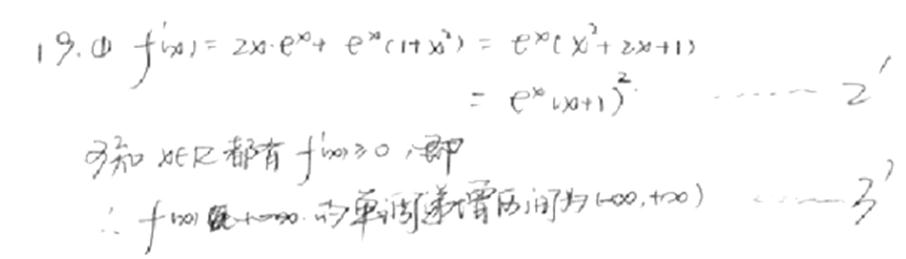 19.① f'(x)=2x·eˣ+eˣ(1+x²)=eˣ(x²+2x+1)
=eˣ(x+1)². ······ 2'
可知 x∈R 都有 f'(x)≥0,即
∴ f(x) 的单调递增区间为(-∞,+∞) ······ 3'